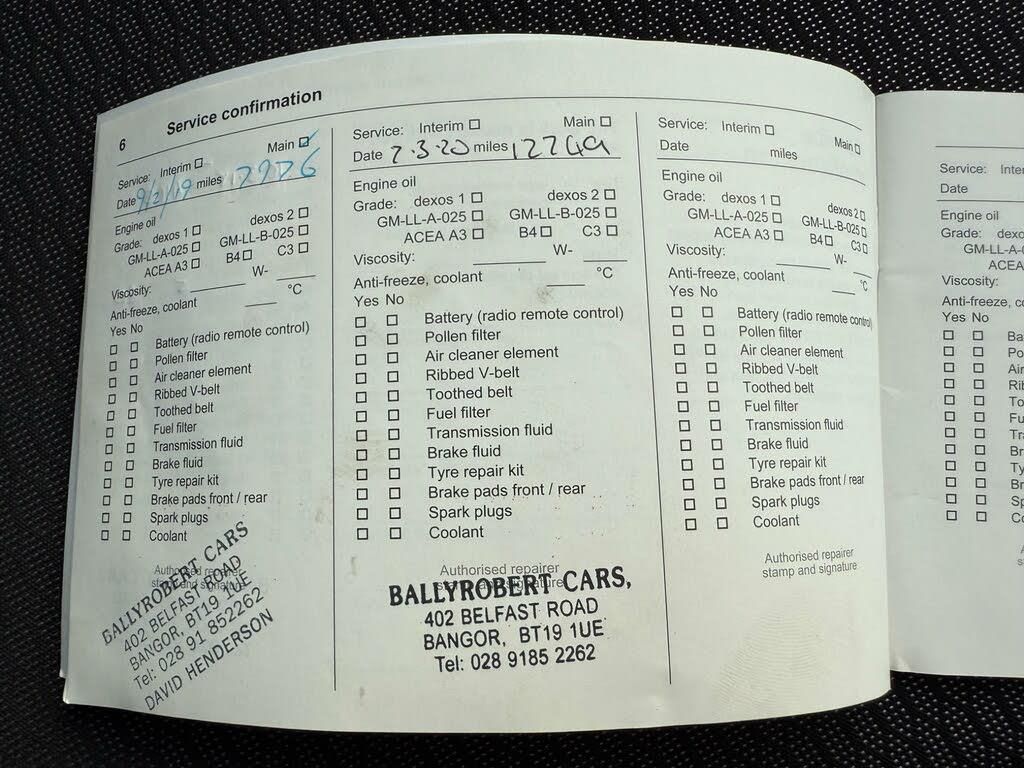 6 Service confirmation
Service: Interim Main
Date 9/2/19 miles 7976
Engine oil
Grade: dexos 1 dexos 2
GM-LL-A-025 GM-LL-B-025
ACEA A3 B4 C3
Viscosity: W-
Anti-freeze, coolant °C
Yes No
Battery (radio remote control)
Pollen filter
Air cleaner element
Ribbed V-belt
Toothed belt
Fuel filter
Transmission fluid
Brake fluid
Tyre repair kit
Brake pads front / rear
Spark plugs
Coolant
Authorised repairer
stamp and signature
BALLYROBERT CARS
402 BELFAST ROAD
BANGOR, BT19 1UE
Tel: 028 91 852262
DAVID HENDERSON
Service: Interim Main
Date 7.3.20 miles 12749
Engine oil
Grade: dexos 1 dexos 2
GM-LL-A-025 GM-LL-B-025
ACEA A3 B4 C3
Viscosity: W-
Anti-freeze, coolant °C
Yes No
Battery (radio remote control)
Pollen filter
Air cleaner element
Ribbed V-belt
Toothed belt
Fuel filter
Transmission fluid
Brake fluid
Tyre repair kit
Brake pads front / rear
Spark plugs
Coolant
Authorised repairer
stamp and signature
BALLYROBERT CARS,
402 BELFAST ROAD
BANGOR, BT19 1UE
Tel: 028 9185 2262
Service: Interim Main
Date miles
Engine oil
Grade: dexos 1 dexos 2
GM-LL-A-025 GM-LL-B-025
ACEA A3 B4 C3
Viscosity: W-
Anti-freeze, coolant °C
Yes No
Battery (radio remote control)
Pollen filter
Air cleaner element
Ribbed V-belt
Toothed belt
Fuel filter
Transmission fluid
Brake fluid
Tyre repair kit
Brake pads front / rear
Spark plugs
Coolant
Authorised repairer
stamp and signature
Service:
Date
Engine oil
Grade:
GM-LL-A
ACEA
Viscosity:
Anti-freeze,
Yes No